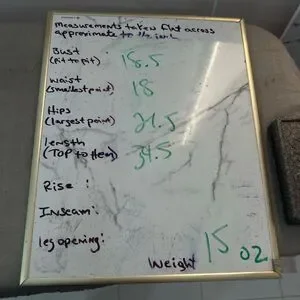 measurements taken flat across
approximate to ½ inch
Bust : 18.5
(Pit to Pit)
waist : 18
(smallest point)
Hips : 21.5
(largest point)
length : 34.5
(TOP to Hem)
Rise :
Inseam :
leg opening :
Weight 15 oz